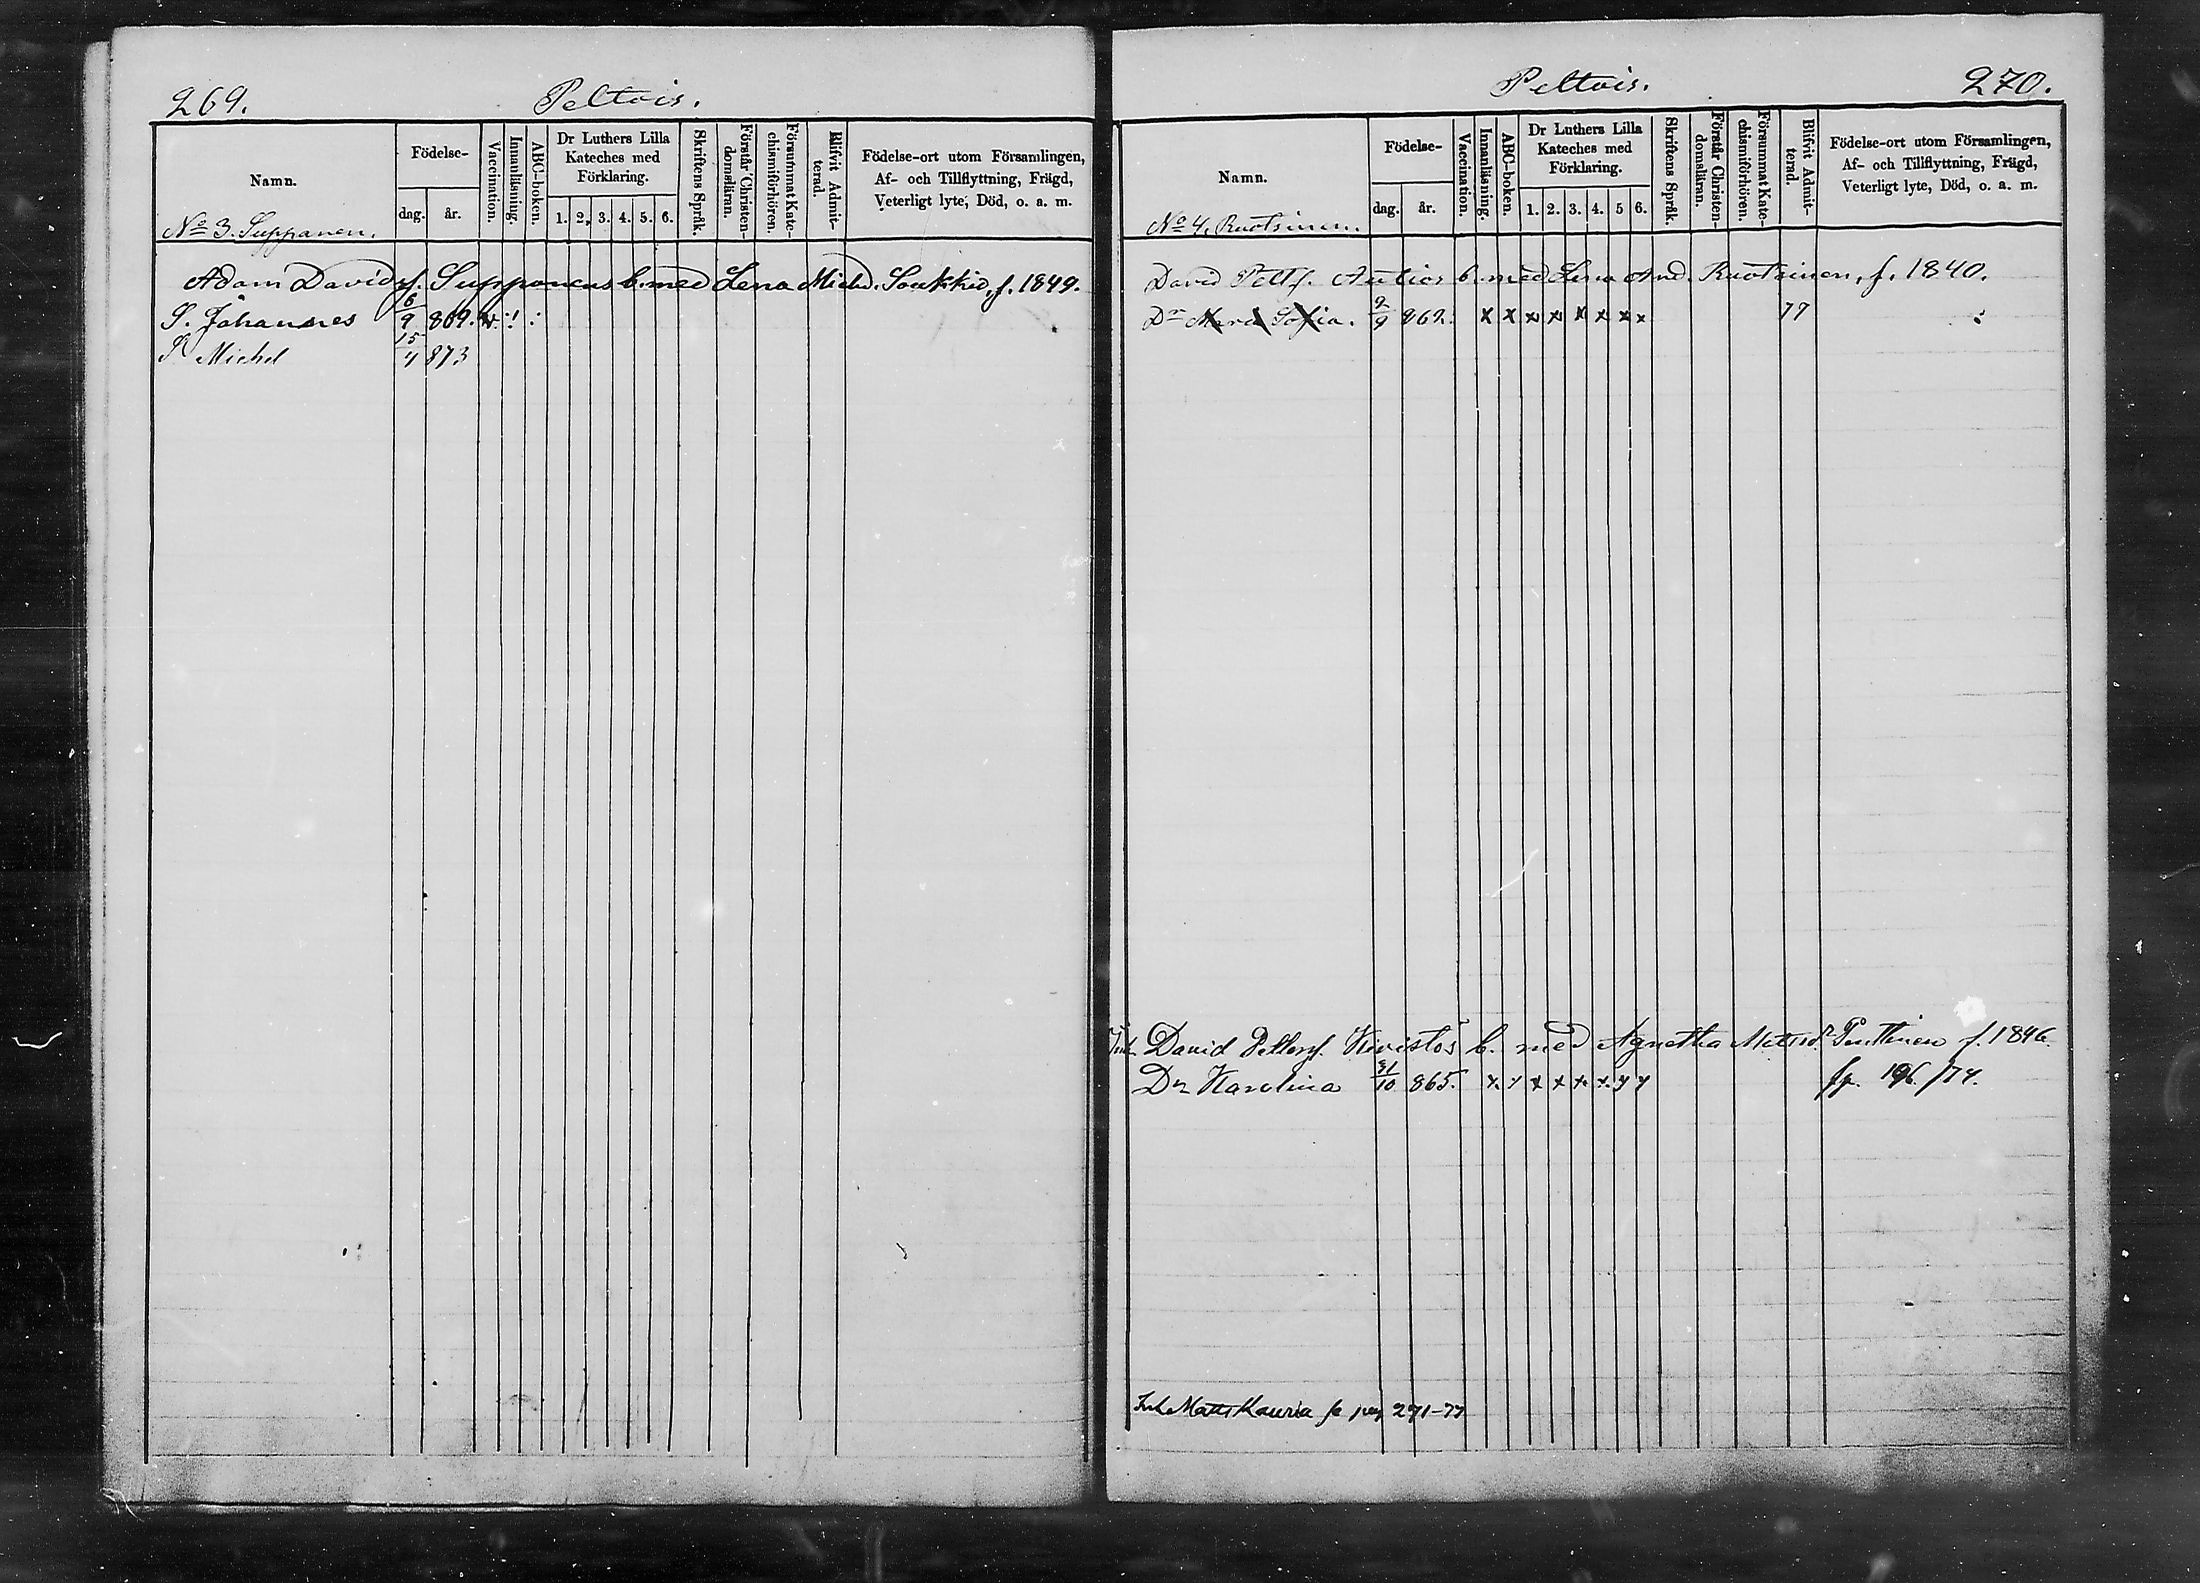 269.
Peltois.
Namn.
Födelse-
dag. år.
Vaccination.
Innanläsning.
ABC-boken.
Dr Luthers Lilla Kateches med Förklaring.
1. 2. 3. 4. 5. 6.
Skriftens Språk.
Förstår Christendomsläran.
Försummat Katechismiförhören.
Blifvit Admitterad.
Födelse-ort utom Församlingen, Af- och Tillflyttning, Frägd, Veterligt lyte, Död, o. a. m.
No 3. Suppanen.
Adam Davids. Supponens b. med Lena Michd. Soukkio, f. 1849.
S. Johannes 6/9 869.
S. Michel 15/4 873
Peltois.
270.
Namn.
Födelse-
dag. år.
Vaccination.
Innanläsning.
ABC-boken.
Dr Luthers Lilla Kateches med Förklaring.
1. 2. 3. 4. 5 6.
Skriftens Språk.
Förstår Christendomsläran.
Försummat Katechismiförhören.
Blifvit Admitterad.
Födelse-ort utom Församlingen, Af- och Tillflyttning, Frägd, Veterligt lyte, Död, o. a. m.
No 4. Ruotsinen.
David Pettf. Autios b. med Lena And. Ruotsinen, f. 1840.
Dr Maria Sofia. 9/9 862. x x x x x x x x 77
Inh. David Petterf. Kivistös b. med Agnetha Mattsdr Penttinen f. 1846.
Dr Karolina 31/10 865. x x x x x x x x fp. 196/74.
Inh Matts Kauria se pag 271-77